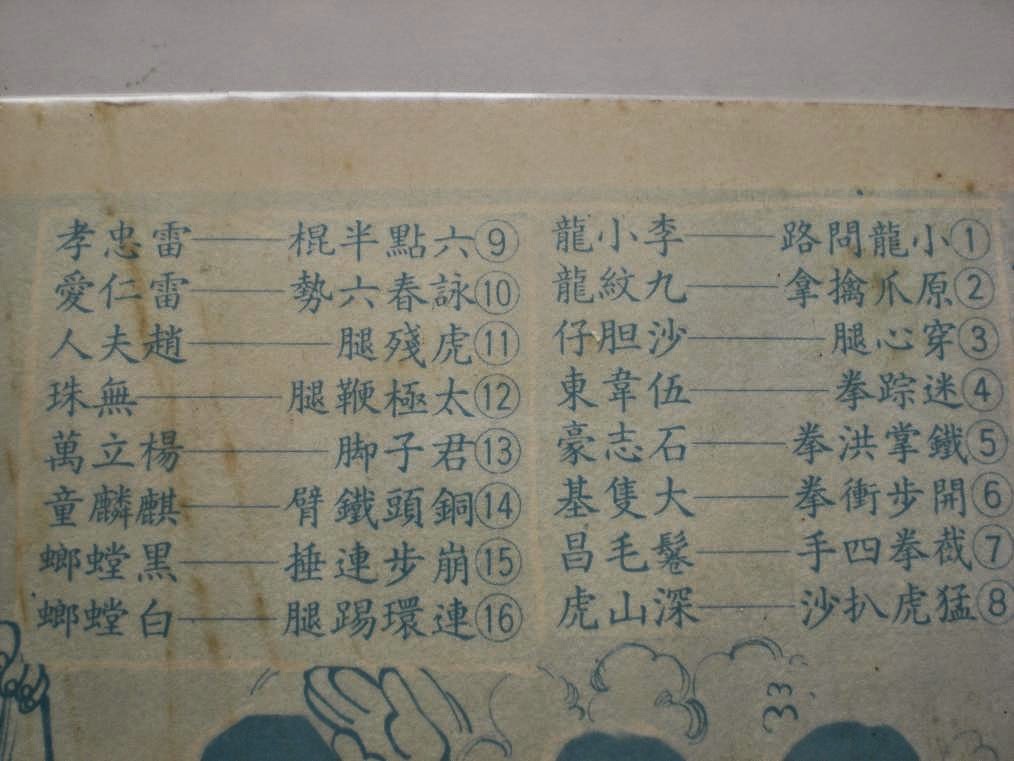 ①小龍問路——李小龍
②原爪擒拿——九紋龍
③穿心腿——沙胆仔
④迷踪拳——伍韋東
⑤鐵掌洪拳——石志豪
⑥開步衝拳——大隻基
⑦截拳四手——鬈毛昌
⑧猛虎扒沙——深山虎
⑨六點半棍——雷忠孝
⑩詠春六勢——雷仁愛
⑪虎殘腿——趙夫人
⑫太極鞭腿——無珠
⑬君子脚——楊立萬
⑭銅頭鐵臂——麒麟童
⑮崩步連捶——黑螳螂
⑯連環踢腿——白螳螂